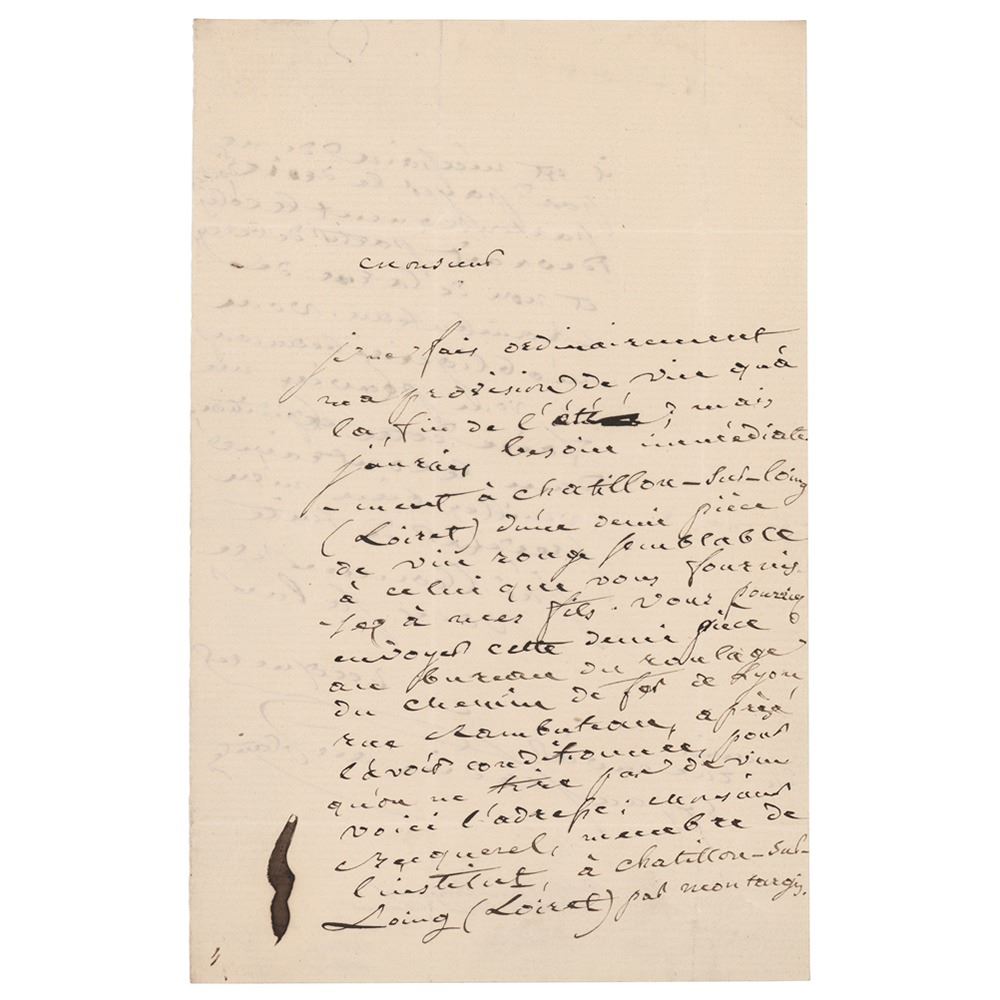 Monsieur
je ne fais ordinairement
ma provision de vin qu'à
la fin de l'été; mais
j'aurais besoin immédiate
-ment à chatillon-sur-loing
(Loiret) d'une demi pièce
de vin rouge semblable
à celui que vous fournis-
-sez à mes fils. Vous pourriez
envoyer cette demi pièce
au bureau du roulage
du chemin de fer de Lyon,
rue Rambuteau, après
l'avoir conditionnée, pour
qu'on ne tire pas de vin
voici l'adresse; Monsieur
Becquerel, membre de
l'institut, à chatillon-sur-
Loing (Loiret) par montargis.